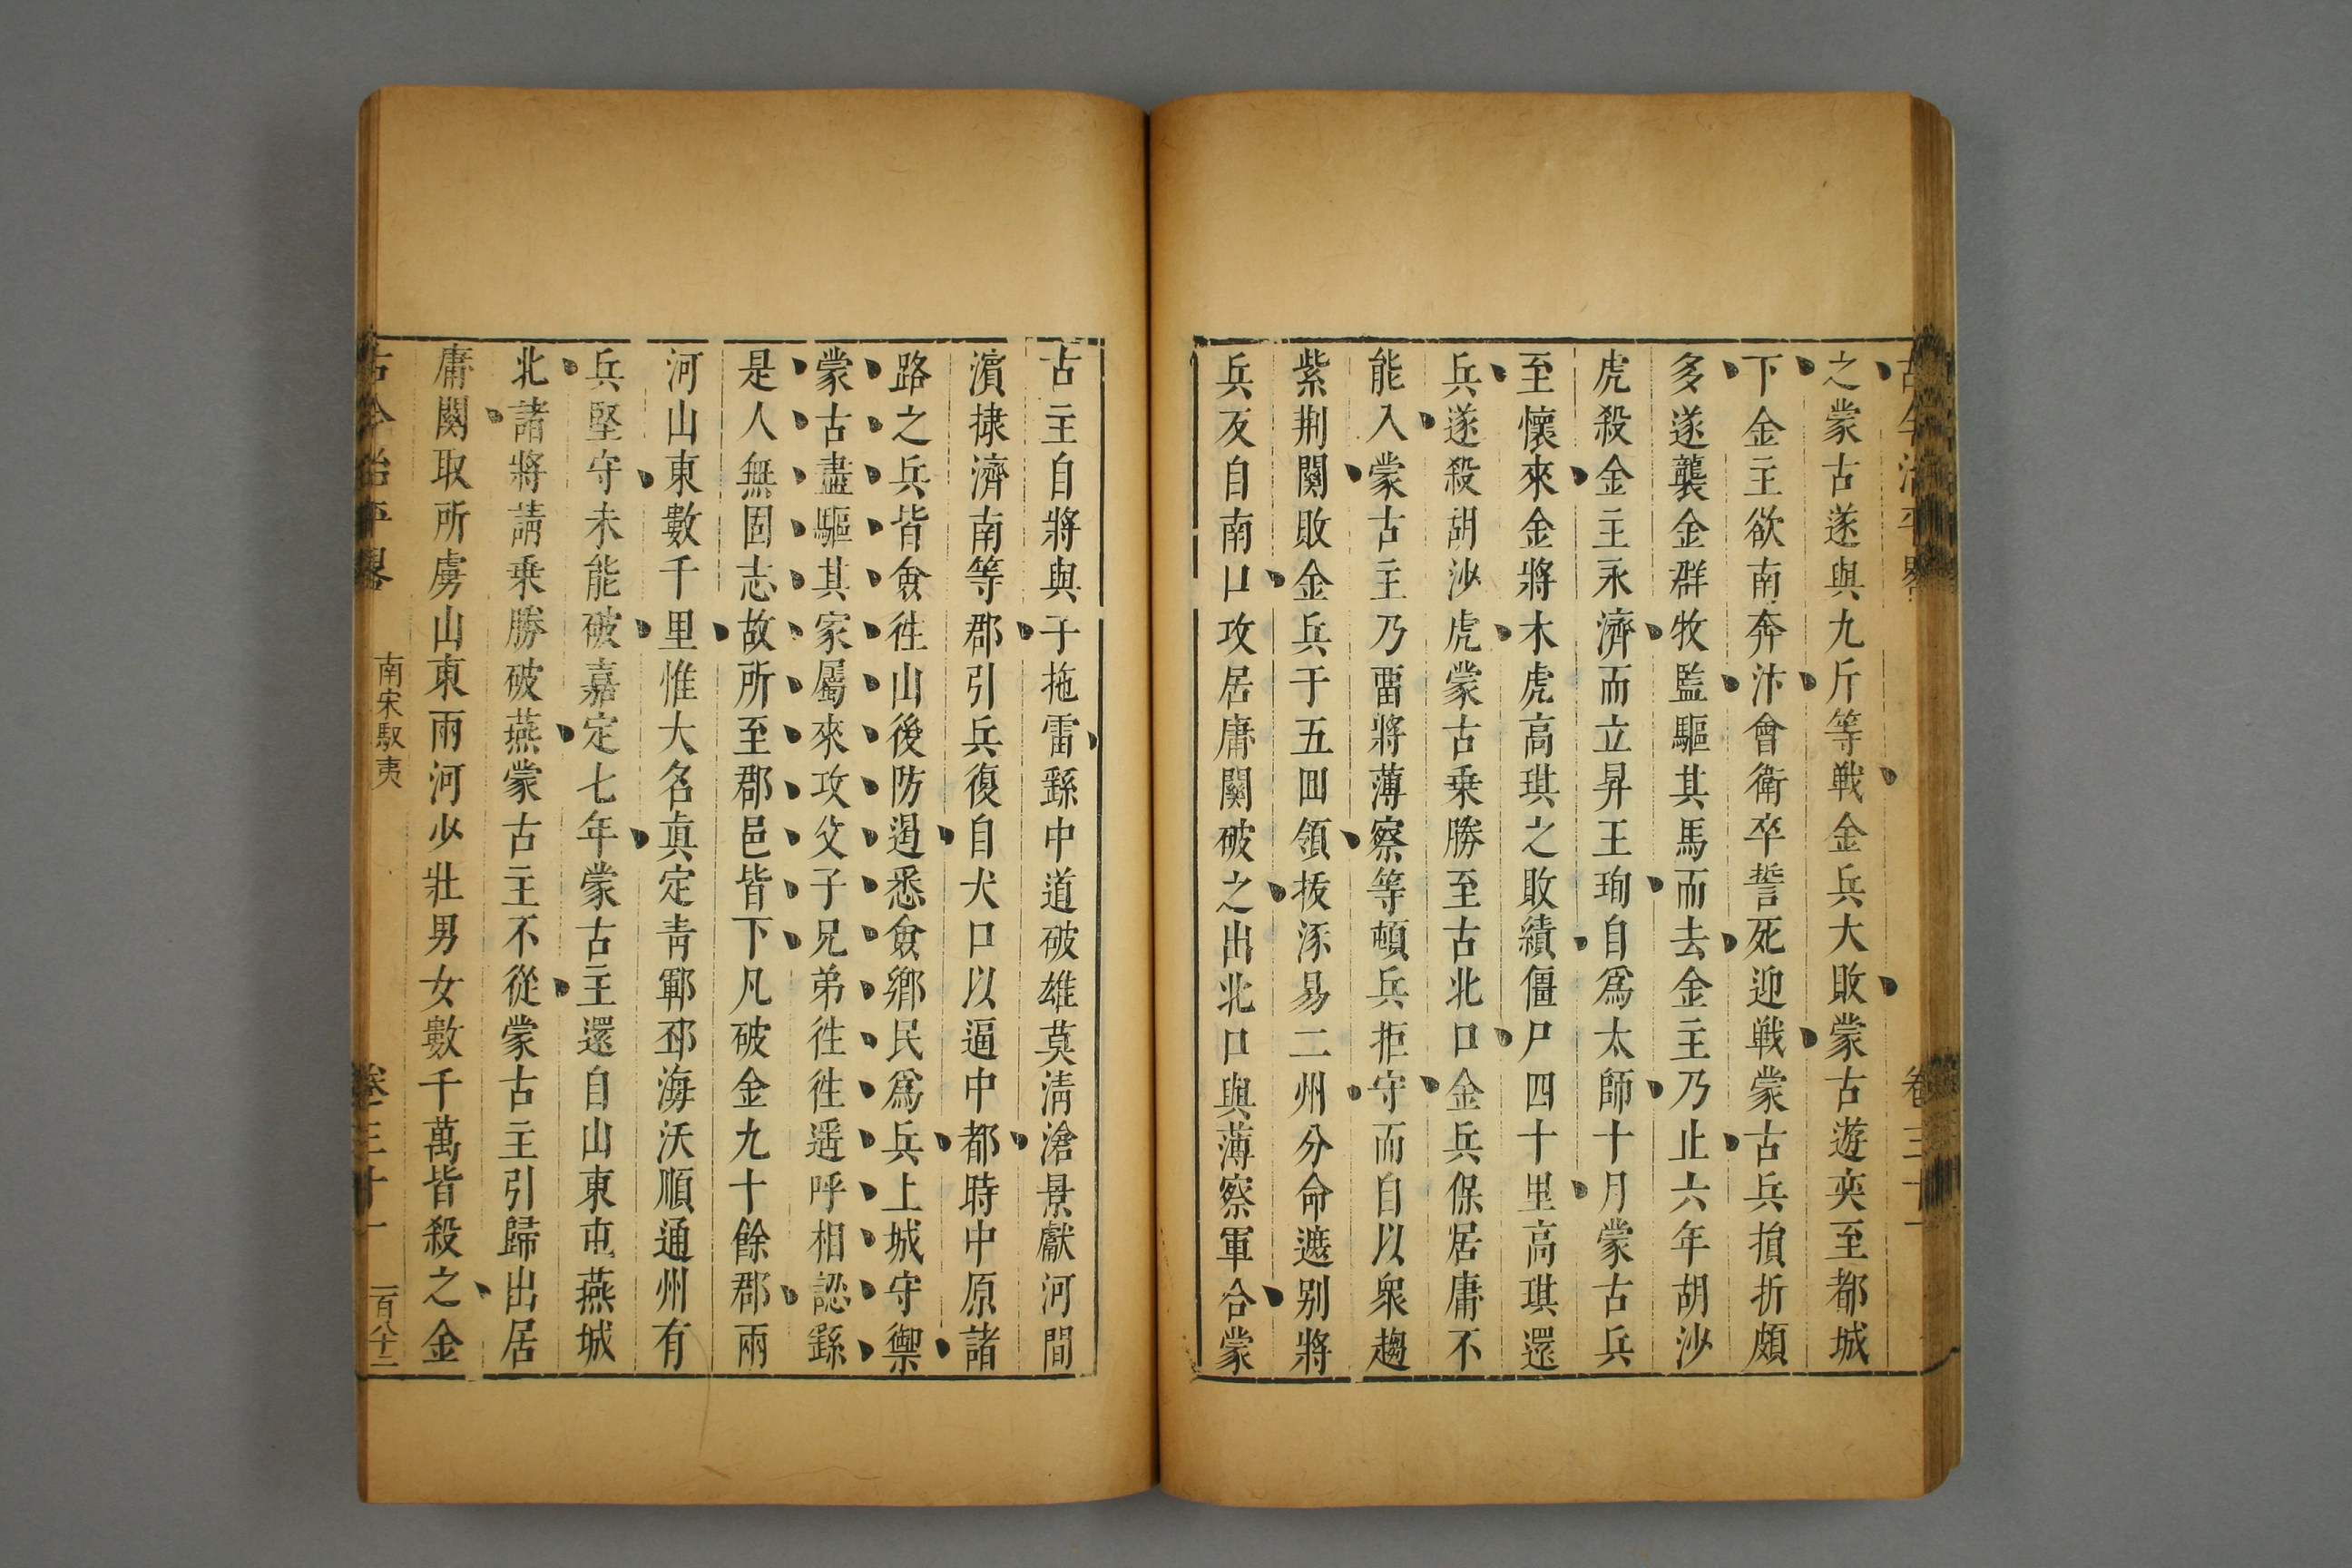 古今治平畧
卷三十一
之蒙古遂與九斤等戰金兵大敗蒙古遊奕至都城
下金主欲南奔汴會衛卒誓死迎戰蒙古兵損折頗
多遂襲金群牧監驅其馬而去金主乃止六年胡沙
虎殺金主永濟而立昇王珣自爲太師十月蒙古兵
至懷來金將木虎高琪之敗績僵尸四十里高琪還
兵遂殺胡沙虎蒙古乗勝至古北口金兵保居庸不
能入蒙古主乃畱將薄察等頓兵拒守而自以衆趨
紫荆關敗金兵于五回領拔涿易二州分命遮别將
兵反自南口攻居庸關破之出北口與薄察軍合蒙
古主自將與子拖雷繇中道破雄莫淸滄景獻河間
濵棣濟南等郡引兵復自犬口以逼中都時中原諸
路之兵皆僉徃山後防遏悉僉鄉民爲兵上城守禦
蒙古盡驅其家屬來攻父子兄弟徃徃遥呼相認繇
是人無固志故所至郡邑皆下凡破金九十餘郡兩
河山東數千里惟大名眞定靑鄆邳海沃順通州有
兵堅守未能破嘉定七年蒙古主還自山東屯燕城
北諸將請乗勝破燕蒙古主不從蒙古主引歸出居
庸関取所虜山東兩河少壯男女數千萬皆殺之金
古今治平畧
南宋馭夷
卷三十一
一百八十二